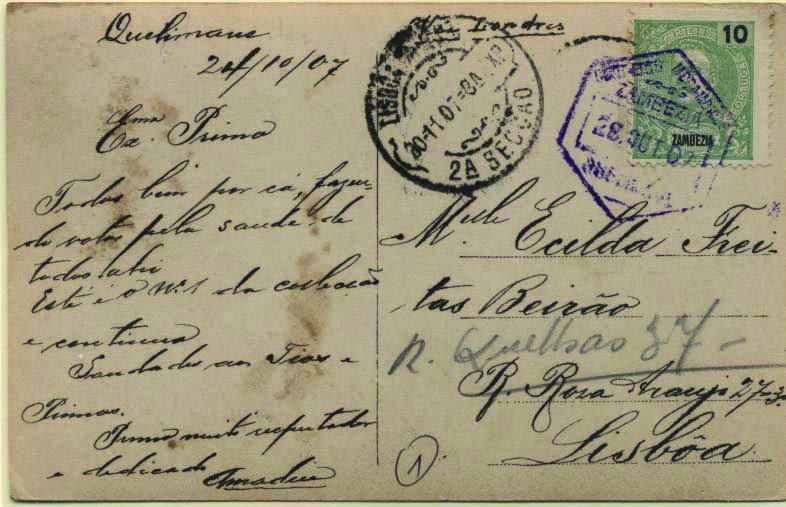 Quelimane
24/10/07
Exma. Prima
Todos bem por cá, fazen-
do votos pela saude de
todos ahi
Este é o Nº 1 da collecção
e continua
Saudades aos Tios e
Primas.
Primo muito respeitador
e dedicado
Amadeu
Londres
LISBOA
20-11 07
2A SECÇÃO
10
ZAMBEZIA
ZAMBEZIA
28 OUT 07
Mlle Ecilda Frei-
tas Beirão
R. Quelhas 37 -
R. Rosa Araujo 27-3º
Lisbôa
1